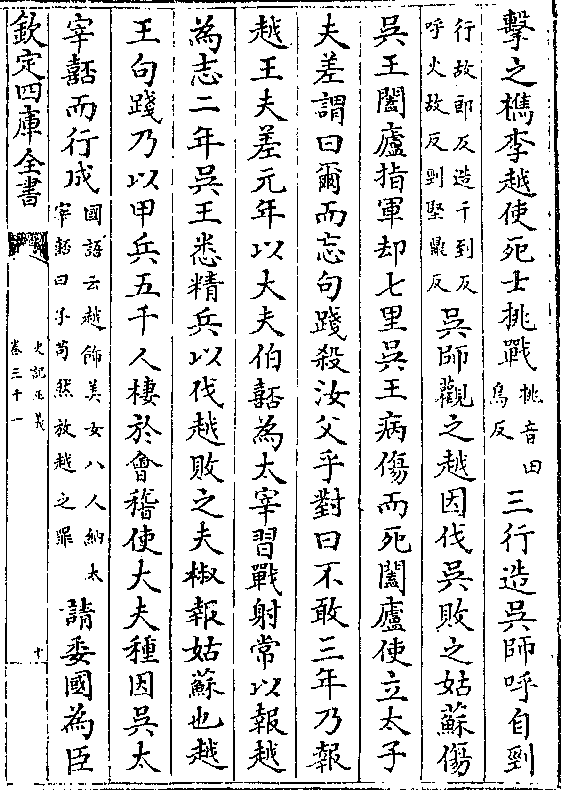 擊之檇李越使死士挑戰桃音田鳥反三行造吳師呼自剄
行故郎反造千到反呼火故反剄堅鼎反吳師觀之越因伐吳敗之姑蘇傷
吳王闔廬指軍却七里吳王病傷而死闔廬使立太子
夫差謂曰爾而忘句踐殺汝父乎對曰不敢三年乃報
越王夫差元年以大夫伯嚭為太宰習戰射常以報越
為志二年吳王悉精兵以伐越敗之夫椒報姑蘇也越
王句踐乃以甲兵五千人棲於會稽使大夫種因吳太
宰嚭而行成國語云越飾美女八人納太宰嚭曰子苟然放越之罪請委國為臣
欽定四庫全書
史記正義
卷三十一
十